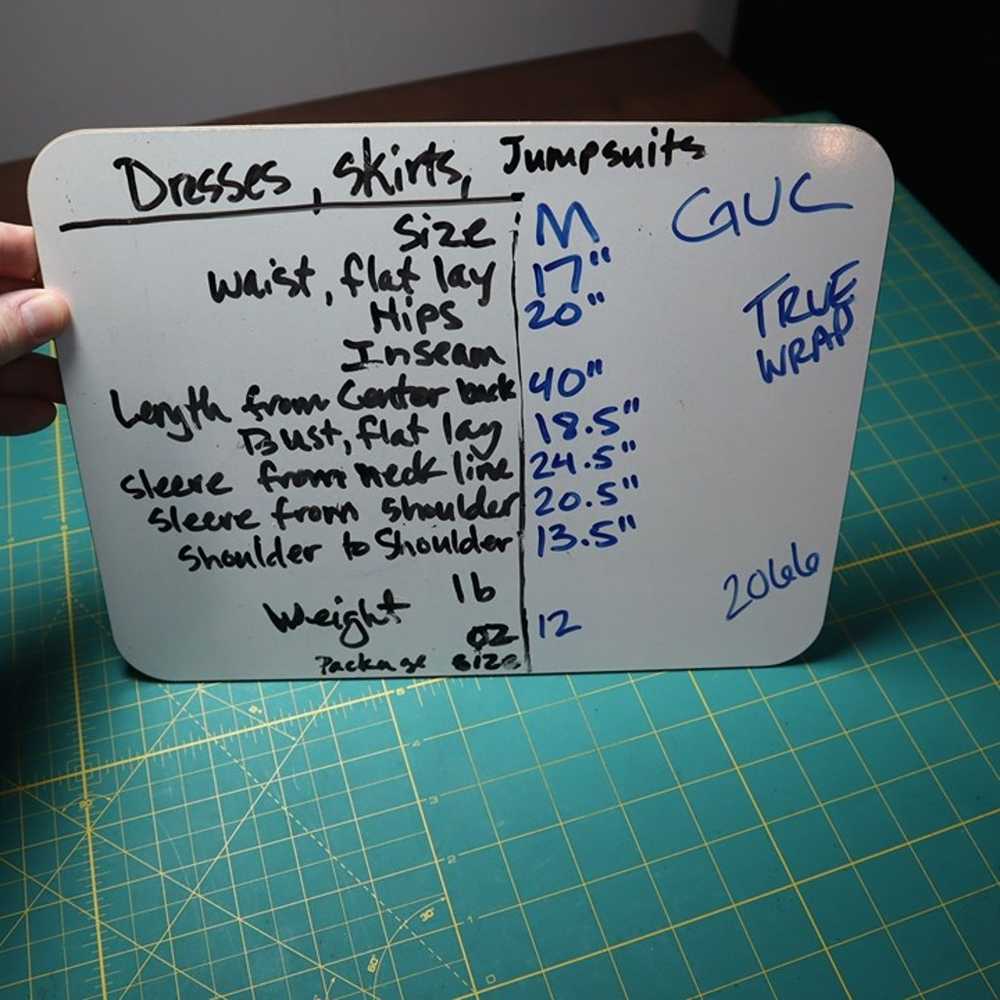 Dresses, skirts, Jumpsuits
Size M GUC
waist, flat lay 17"
Hips 20" TRUE WRAP
Inseam
Length from Center back 40"
Bust, flat lay 18.5"
sleeve from neck line 24.5"
sleeve from shoulder 20.5"
shoulder to Shoulder 13.5"
lb 2066
Weight
oz 12
Package size
0
1
2
3
4
30°
60°